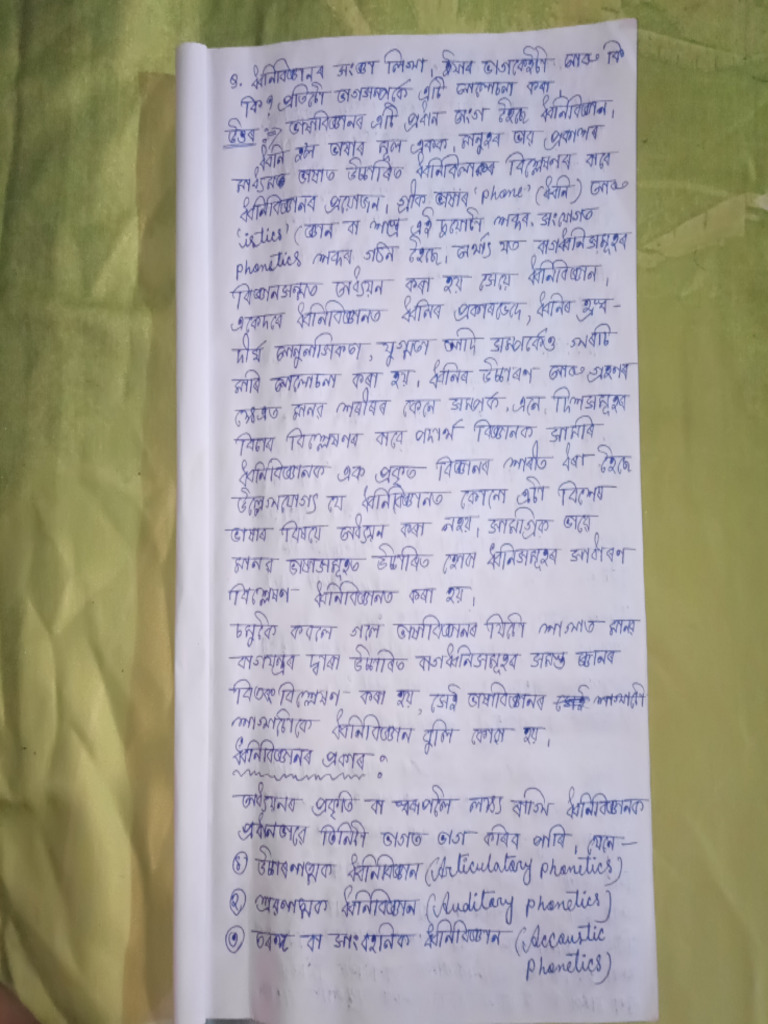 ৪. ধ্বনিবিজ্ঞানৰ সংজ্ঞা লিখা, ইয়াৰ ভাগকেইটা আৰু কি
কি? প্ৰতিটো ভাগসম্পৰ্কে এটি আলোচনা কৰা।
উত্তৰঃ⇒ ভাষাবিজ্ঞানৰ এটি প্ৰধান অংগ হৈছে ধ্বনিবিজ্ঞান,
ধ্বনি হ'ল ভাষাৰ মূল একক, মানুহৰ ভাৱ প্ৰকাশৰ
মাধ্যমত ভাষাত উচ্চাৰিত ধ্বনিবিলাকৰ বিশ্লেষণৰ বাবে
ধ্বনিবিজ্ঞানৰ প্ৰয়োজন, গ্ৰীক ভাষাৰ 'phone' (ধ্বনি) আৰু
'istics' (জ্ঞান বা শাস্ত্ৰ) এই দুয়োটা শব্দৰ সংযোগত
phonetics শব্দৰ গঠন হৈছে, অৰ্থাৎ যত বাগধ্বনিসমূহৰ
বিজ্ঞানসন্মত অধ্যয়ন কৰা হয় সেয়ে ধ্বনিবিজ্ঞান,
একেদৰে ধ্বনিবিজ্ঞানত ধ্বনিৰ প্ৰকাৰভেদ, ধ্বনিৰ হ্ৰস্ব-
দীৰ্ঘ আনুনাসিকতা, যুগ্মতা আদি সম্পৰ্কেও
মাৰি আলোচনা কৰা হয়, ধ্বনিৰ উচ্চাৰণ আৰু গ্ৰহণৰ
ক্ষেত্ৰত মানৱ শৰীৰৰ কেনে সম্পৰ্ক, এনে দিশসমূহৰ
বিচাৰ বিশ্লেষণৰ বাবে পদাৰ্থ বিজ্ঞানক সামৰি
ধ্বনিবিজ্ঞানক এক প্ৰকৃত বিজ্ঞানৰ শাৰীত ধৰা হৈছে
উল্লেখযোগ্য যে ধ্বনিবিজ্ঞানত কোনো এটা বিশেষ
ভাষাৰ বিষয়ে অধ্যয়ন কৰা নহয়, সামগ্ৰিক ভাৱে
মানৱ ভাষাসমূহত উচ্চাৰিত হোৱা ধ্বনিসমূহৰ সাধাৰণ
বিশ্লেষণ ধ্বনিবিজ্ঞানত কৰা হয়,
চমুকৈ ক'বলৈ গলে ভাষাবিজ্ঞানৰ যিটো শাখাত মানৱ
বাগযন্ত্ৰৰ দ্বাৰা উচ্চাৰিত বাগধ্বনিসমূহৰ সমস্ত জ্ঞানৰ
বিশ্লেষণ কৰা হয়, সেই ভাষাবিজ্ঞানৰ শাখাটো
শাখাটোকে ধ্বনিবিজ্ঞান বুলি কোৱা হয়,
ধ্বনিবিজ্ঞানৰ প্ৰকাৰ:
অধ্যয়নৰ প্ৰকৃতি বা স্বৰূপলৈ লক্ষ্য ৰাখি ধ্বনিবিজ্ঞানক
প্ৰধানভাৱে তিনিটা ভাগত ভাগ কৰিব পাৰি, যেনে—
① উচ্চাৰণাত্মক ধ্বনিবিজ্ঞান (Articulatary phonetics)
② শ্ৰৱণাত্মক ধ্বনিবিজ্ঞান (Auditary phonetics)
③ তৰংগ বা সাংবহনিক ধ্বনিবিজ্ঞান (Accaustic
phonetics)